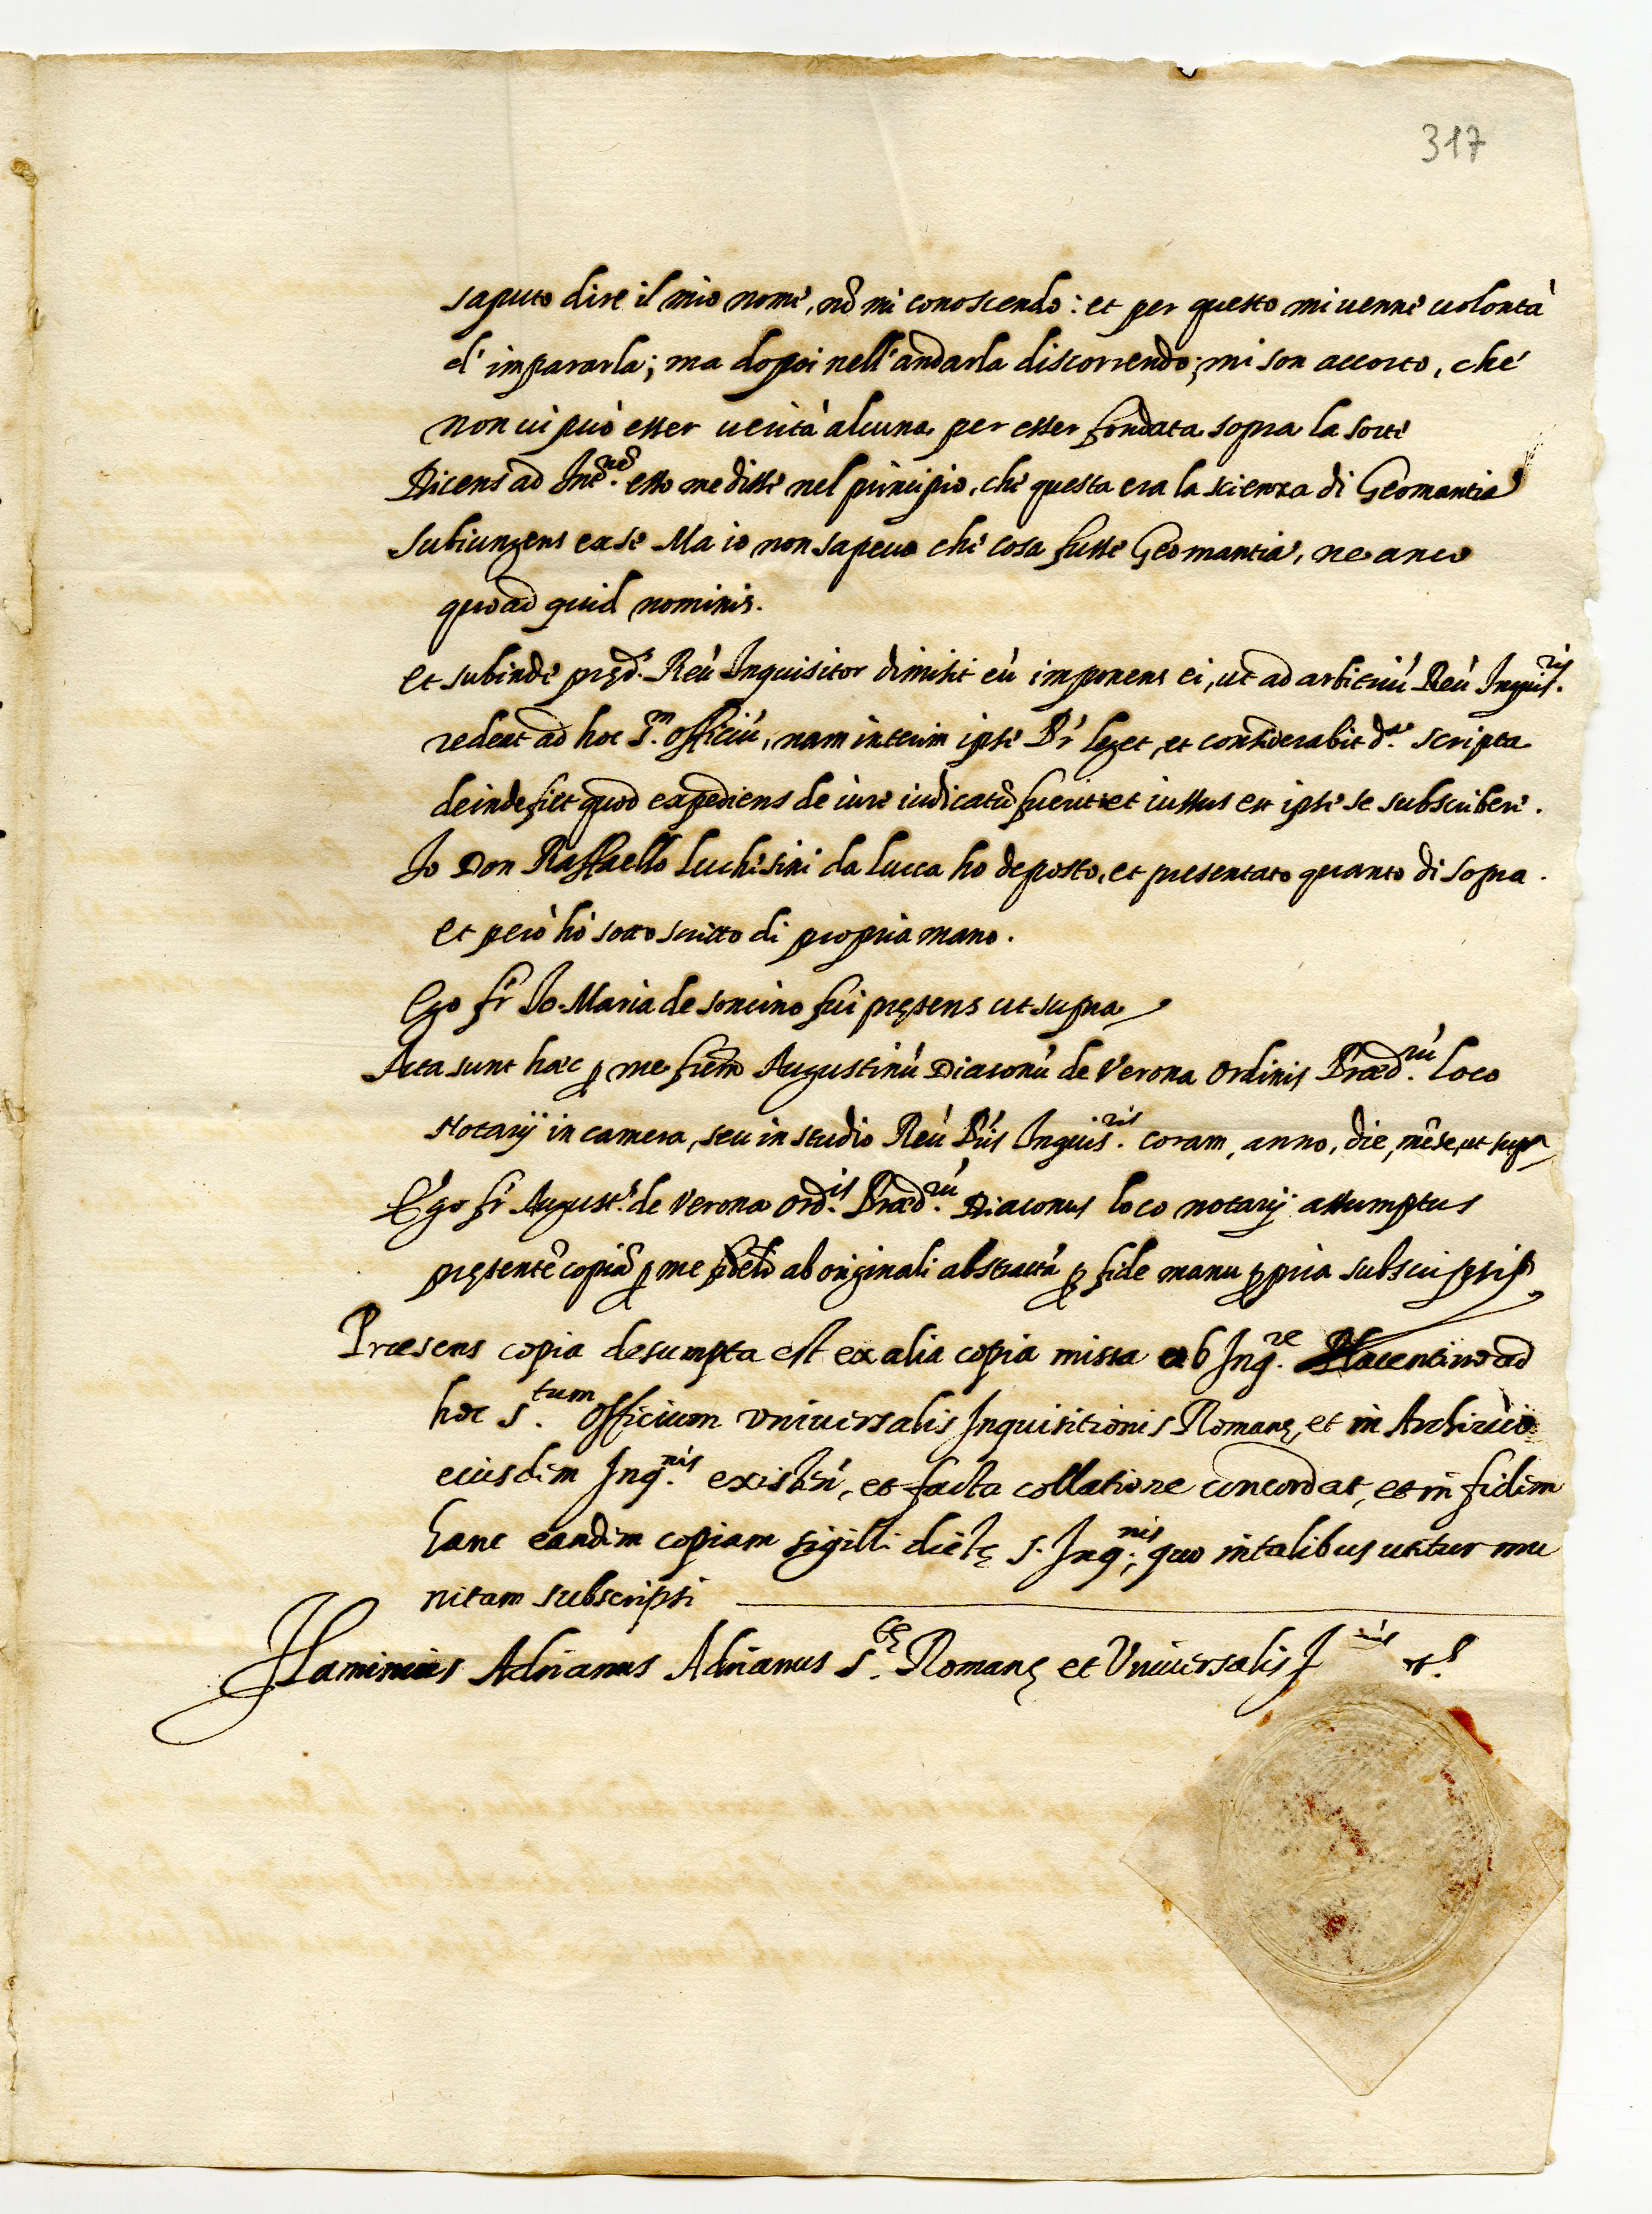 317
saputo dire il mio nome, nõ mi conoscendo: et per questo mi uenne uolontà
d'impararla; ma dopoi nell'andarla discorrendo; mi son accorto, che
non ui può esser uerità alcuna per esser fondata sopra la sorte
Dicens ad Inẽ.nẽ esso me disse nel principio, che questa era la scienza di Geomantia
subiungens ex se Ma io non sapeuo che cosa fusse Geomantia, ne anco
quoad quid nominis.
Et subinde pręd.s Reù Inquisitor dimisit eù imponens ei, ut ad arbitriù Reù Inquis.ris
redeat ad hoc S.m Officiù, nam interim ipse Pr leget, et considerabit d.a scripta
deinde fiet quod expediens de iure iudicatũ fuerit et iussus est ipse se subscribere.
Io Don Raffaello Luchesini da Lucca ho deposto, et presentato quanto di sopra.
et però hò sotto scritto di propria mano.
Ego fr Io. Maria de soncino fui pręsens ut supra
Acta sunt hæc ꝑ me frẽm Augustinù Diaconù de Verona Ordinis Præd.rù loco
Notarij in camera, seu in studio Reù P̃ris Inquis.ris coram, anno, die, mẽse, ut supra
Ego fr August.s de Verona ord.is Præd.rù Diaconus loco notarij assumptus
pręsentẽ copiã ꝑ me ab originali abstractà ꝓ fide manu ꝓpria subscripsi
Præsens copia desumpta est ex alia copia missa ab Inq.re Placentino ad
hoc S.tum Officium vniuersalis Inquisitionis Romanę, et in Archiuio
eiusdem Inq.nis existẽ, et facta collatione concordat, et in fidem
hanc eandem copiam sigilli dictę S. Inq.nis, quo in talibus utitur mu
nitam subscripsi
Flaminius Adrianus Adrianus S.tę Romanę et Vniuersalis I nis